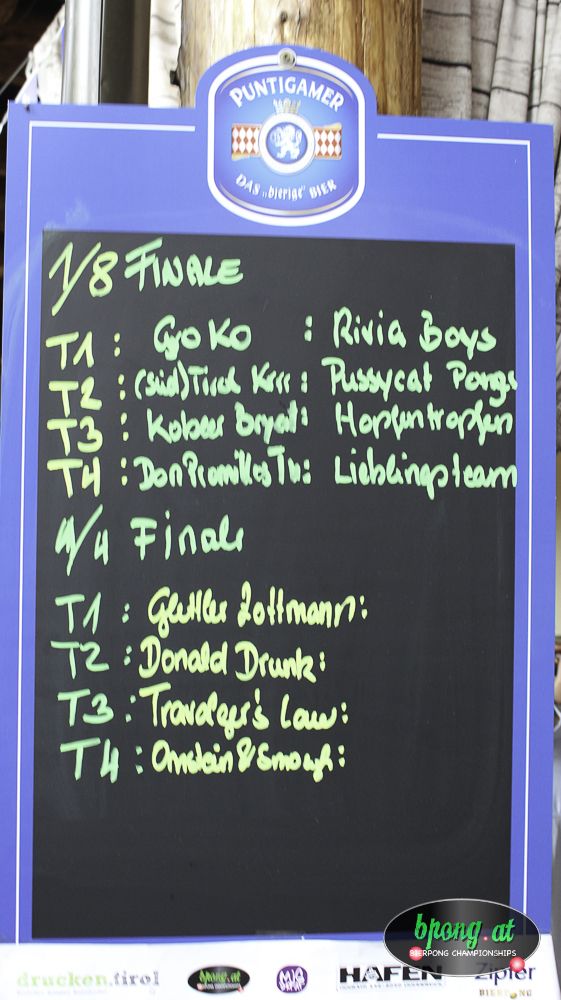 PUNTIGAMER
DAS "bierige" BIER
1/8 FINALE
T1 : GoKo : Rivia Boys
T2 : (Süd)Tirol Krrr : Pussycat Pongs
T3 : : Hopfentropfen
T4 : Don Promillos Tw: Lieblingsteam
1/4 Finale
T1 : Zottmann:
T2 : Donald Drunk:
T3 : Law:
T4 : Ornstein & Smough:
bpong.at
BIERPONG CHAMPIONSHIPS
drucken.tirol bpong.at HAFEN Zipfer
BIERPONG